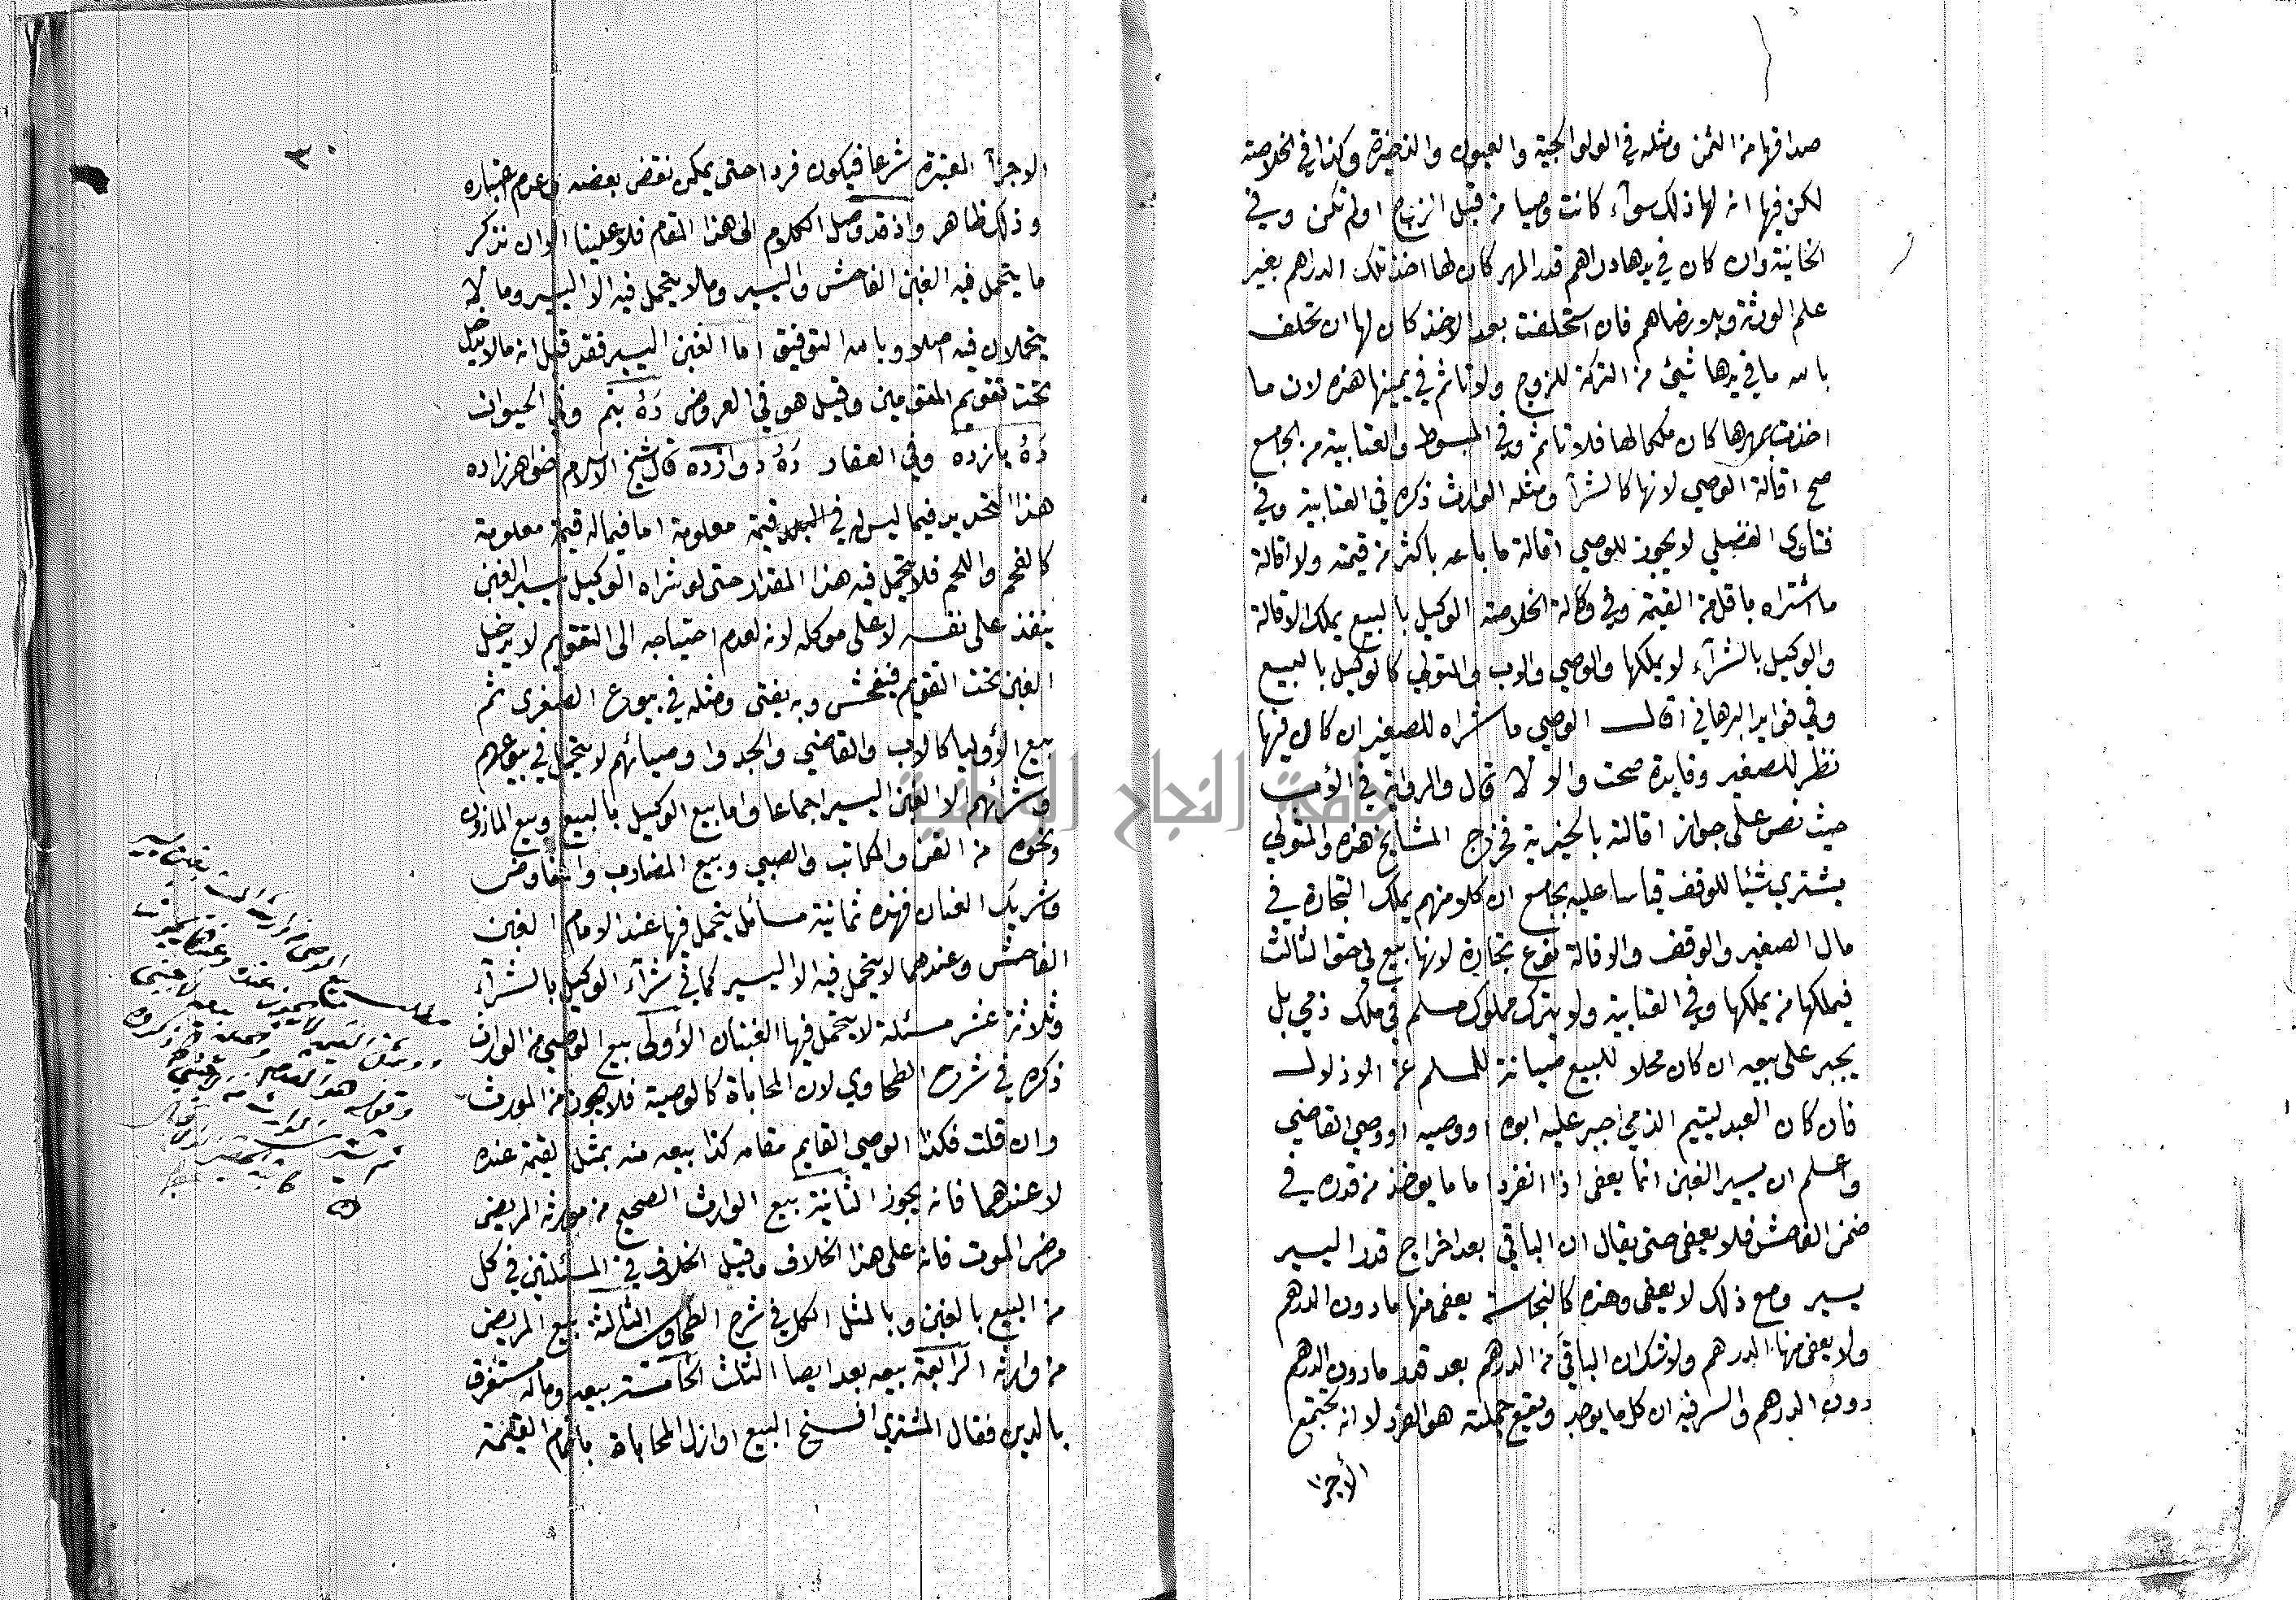 صداقها من الثمن ومثله في الولوالجية والعيون والذخيرة وكذا في الخلاصة
لكن فيها انه لها ذلك سوآء كانت وصيا من قبل الزوج او لم تكن وفي
الخانية وان كان في يدها دراهم قدر المهر كان لها اخذ تلك الدراهم بغير
علم الورثة وبلا رضاهم فان استحلفت بعد الاخذ كان لها ان تحلف
بالله ما في يدها شيئ من التركة للزوج ولا تاثم في يمينها هذه لان ما
اخذت بمهرها كان ملكا لها فلا تاثم وفي المبسوط والعتابية من الجامع
صح اقالة الوصي لانها كالشرآ ومثله الوارث ذكره في العتابية وفي
فتاوى الفضلي لا يجوز للوصي اقالة ما باعه باكثر من قيمته ولا اقالة
ما اشتراه باقل من القيمة وفي وكالة الخلاصة الوكيل بالبيع يملك الاقالة
والوكيل بالشرآء لا يملكها والوصي والاب والمتولي كالوكيل بالبيع
وفي فوايد البرهاني اقال الوصي ما شراه للصغير ان كان فيها
نظر للصغير وفايدة صحت والا لا قال والرواية في الأب
حيث نص على جواز اقالته بالخيرية فخرج المشايخ هذه والمتولي
يشتري شيئا للوقف قياسا عليه بجامع ان كلا منهم يملك التجارة في
مال الصغير والوقف والاقالة نوع تجارة لانها بيع في حق الثالث
فيملكها من يملكها وفي العتابية ولا يترك مملوك مسلم في ملك ذمي بل
يجبر على بيعه ان كان محلا للبيع صيانة للمسلم عن الاذلال
فان كان العبد ليتيم الذمي اجبر عليه ابوه او وصيه او وصي القاضي
واعلم ان يسير الغبن انما يعفى اذا انفرد اما ما يوخذ من قدره في
ضمن الفاحش فلا يعفى حتى يقال ان الباقي بعد اخراج قدر اليسير
يسير ومع ذلك لا يعفى وهذه كالنجاسة يعفى منها ما دون الدرهم
ولا يعفى منها الدرهم ولا شك ان الباقي من الدرهم بعد قدر ما دون الدرهم
دون الدرهم والسر فيه ان كل ما يوجد ويقع جملته هو الفرد لا انه تجتمع
الأجزآ
٣٠
الاجزآ المعتبرة شرعا فيكون فردا حتى يمكن نقض بعضه وعدم اعتباره
وذلك ظاهر واذ قد وصل الكلام الى هذا المقام فلا علينا الا ان نذكر
ما يتحمل فيه الغبن الفاحش واليسير وما لا يتحمل فيه الا اليسير وما لا
يتحملان فيه اصلا وبالله التوفيق اما الغبن اليسير فقد قيل انه ما لا يدخل
تحت تقويم المقومين وقيل هو في العروض دَهْ نيم وفي الحيوان
دَهْ يازده وفي العقار دَهْ دوازده قال شيخ الاسلام خواهرزاده
هذا التحديد فيما ليس له في البلد قيمة معلومة اما فيما له قيمة معلومة
كالفحم واللحم فلا يتحمل فيه هذا المقدار حتى لو شراه الوكيل بيسير الغبن
ينفذ على نفسه لا على موكله لانه لعدم احتياجه الى التقويم لا يدخل
الغبن تحت التقويم فيفحش وبه يفتى ومثله في بيوع الصغرى ثم
بيع الأوليا كالاب والقاضي والجد واوصيائهم لا يتحمل في بيوعهم
وشرائهم الا الغبن اليسير اجماعا واما بيع الوكيل بالبيع وبيع الماذون
ونحوه من القن والمكاتب والصبي وبيع المضارب والمفاوض
وشريك العنان فهذه ثمانية مسائل يتحمل فيها عند الامام الغبن
الفاحش وعندهما لا يتحمل فيه الا اليسير كما في شرآء الوكيل بالشرآء
وثلاثة عشر مسئلة لا يتحمل فيها الغبنان الأولى بيع الوصي من الوارث
ذكره في شرح الطحاوي لان المحاباة كالوصية فلا يجوز من المورث
وان قلت فكذا الوصي القايم مقامه كذا بيعه منه بمثل القيمة عنده
لا عندهما فانه يجوز الثانية بيع الوارث الصحيح من مورثه المريض
مرض الموت فانه على هذا الخلاف وقيل الخلاف في المسئلتين في كل
من البيع بالغبن وبالمثل الكل في شرح الطحاوي الثالثة بيع المريض
من وارثه الرابعة بيعه بعد ايصا الثلث الخامسة بيعه وماله مستغرق
بالدين فقال المشتري افسخ البيع او ازل المحاباة باتمام القيمة
جامعة النجاح الوطنية